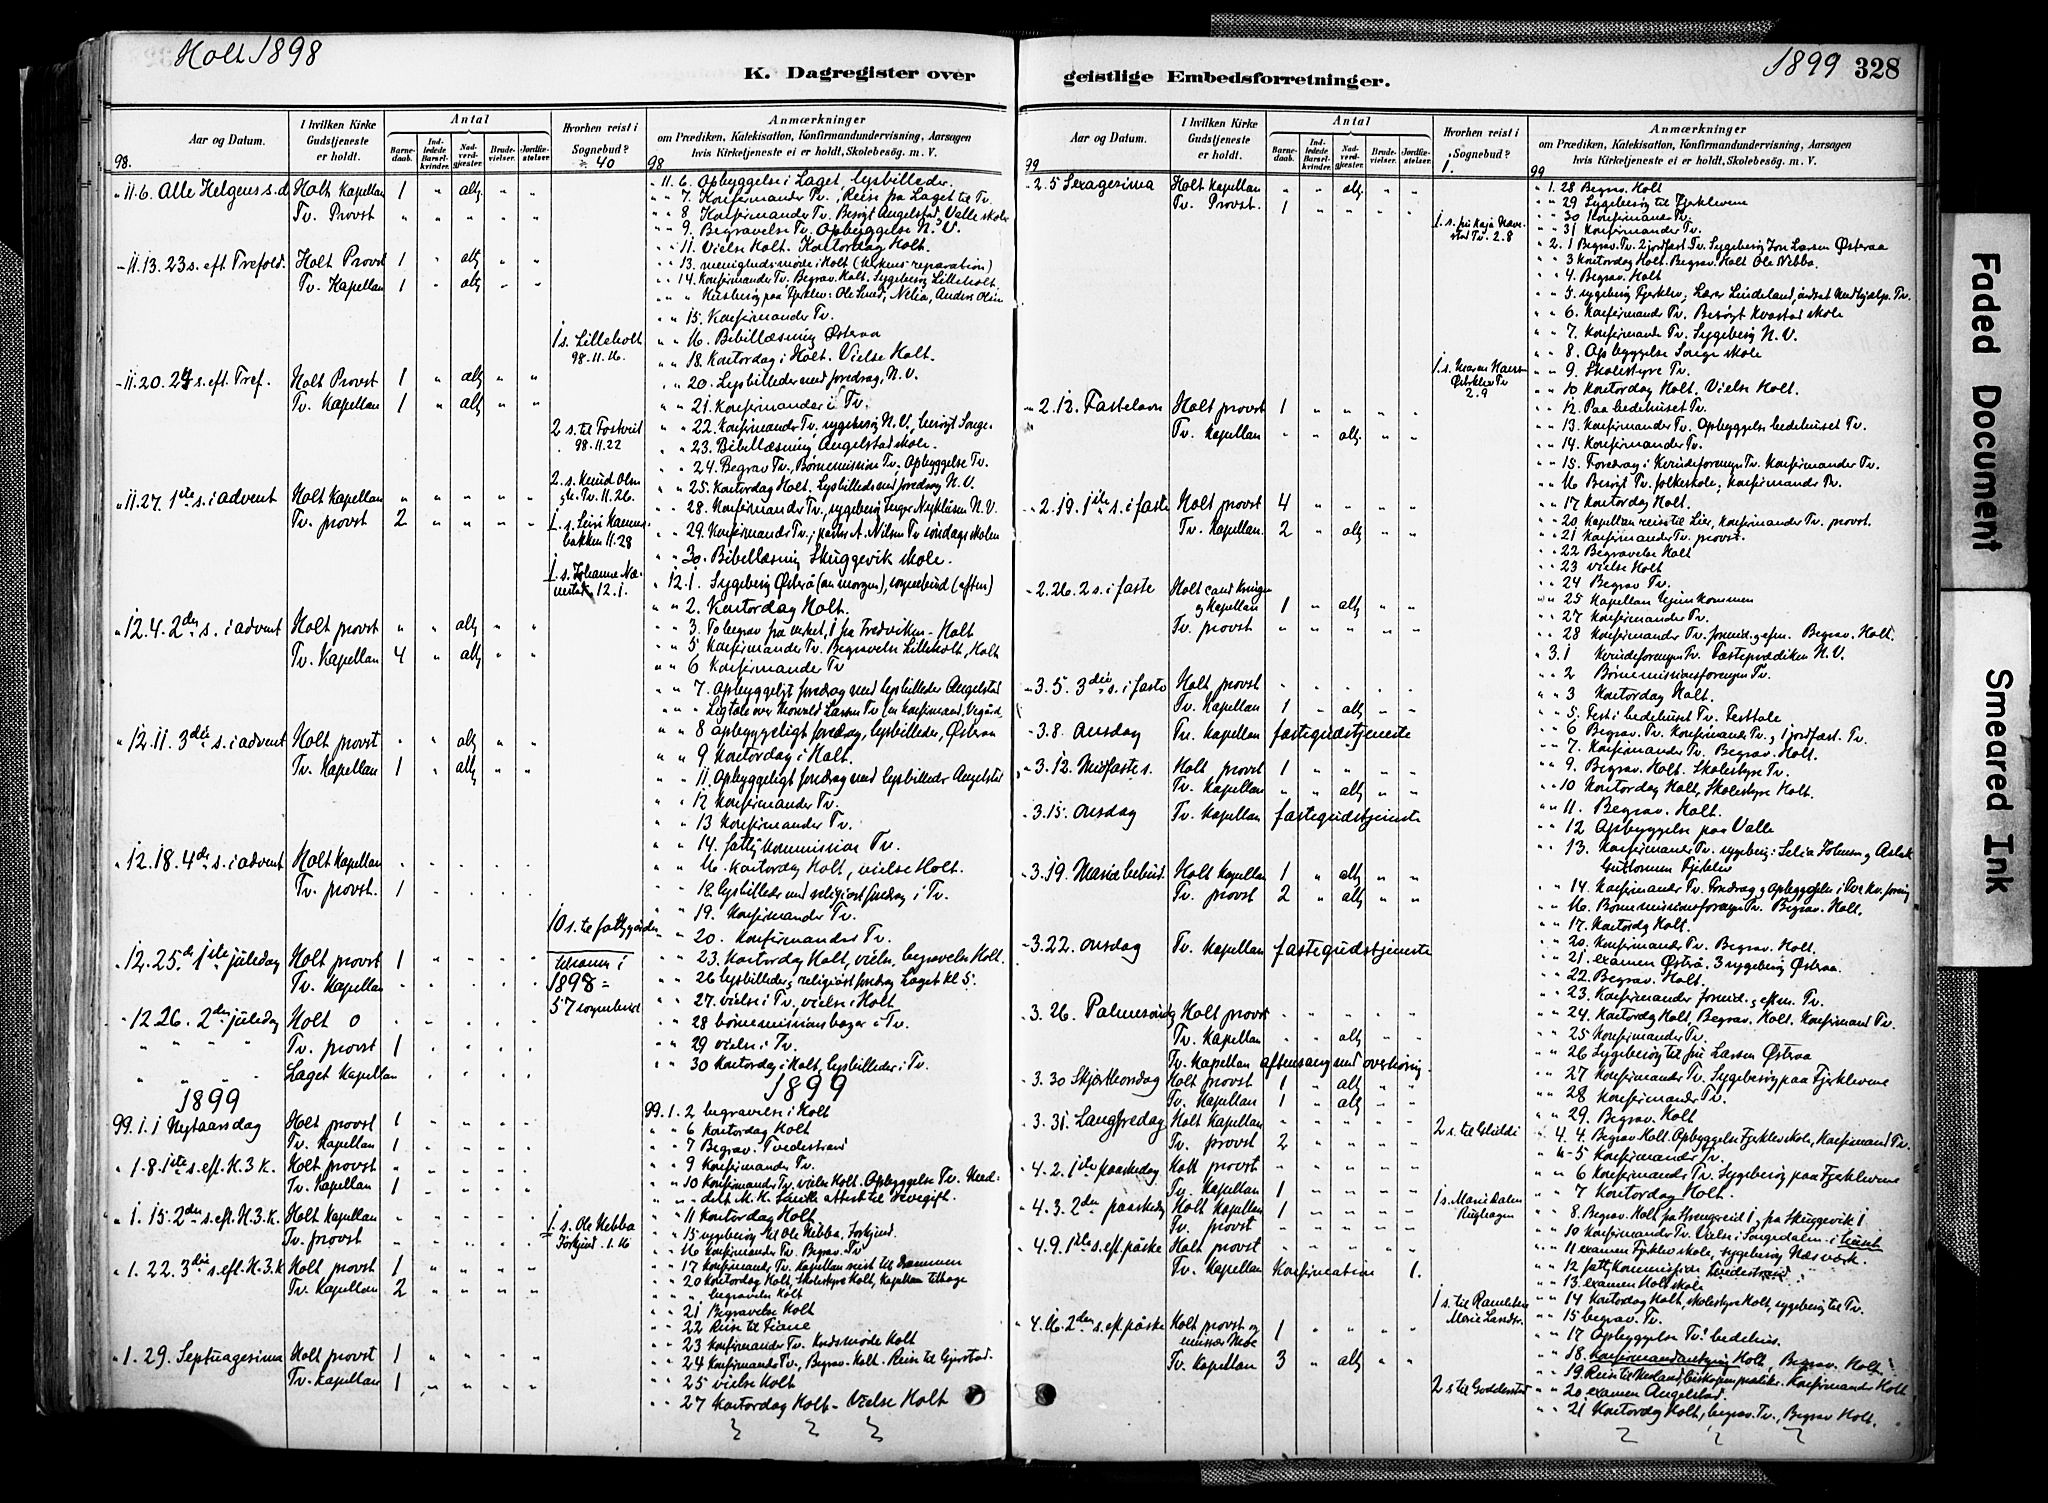 Holt 1898
K. Dagregister over
Aar og Datum.
I hvilken Kirke Gudstjeneste er holdt.
Antal
Barnedaab.
Indledede Barselkvinder.
Nadverdgjester.
Brudevielser.
Jordfæstelser.
Hvorhen reist i Sognebud?
40
Anmærkninger
om Prædiken, Katekisation, Konfirmandundervisning, Aarsagen
hvis Kirketjeneste ei er holdt, Skolebesøg. m. V.
98.
98
" 11.6. Alle Helgens s.d Holt Kapellan 1 " allg " "
Tv. Provst " " " " "
- 11.13. 23 s. eft Trefold. Holt Provst 1 " allg " "
Tv. Kapellan 1 " allg " "
- 11.20. 24 s. eft Tref. Holt Provst 1 " allg " "
Tv. Kapellan 1 " allg " "
" 11.27. 1ste s. i advent Holt Kapellan " " " " "
Tv. provst 2 " " " "
" 12.4. 2den s. i advent Holt provst " " allg " "
Tv. Kapellan 4 " allg " "
" 12.11. 3die s. i advent Holt provst " " allg " "
Tv. Kapellan 1 " allg " "
" 12.18. 4de s. i advent Holt Kapellan
Tv. provst. 1
" 12.25. 1ste juledag Holt provst 1
Tv. Kapellan
- 12.26. 2den juledag Holt 0
" " " " Tv. provst 1
" " " " Laget Kapellan
1899
99.1.1 Nytaarsdag Holt provst 1
Tv. Kapellan 1
" 1.8. 1ste s. eft. H.3.K. Holt provst 1
Tv. Kapellan 1
" 1.15. 2den s. eft. H.3.K. Holt Kapellan
Tv. provst
" 1.22. 3die s. eft. H.3.K Holt provst 1
Tv. Kapellan 2
" 1.29. Septuagesima Holt provst 1
Tv. Kapellan 1
1 s. Lilleholt
98.11.16.
2 s. til
98.11.22
2 s. Knud Olsen
Tv. 11.26.
1 s.
bakken 11.28
1 s. Johanne
12.1.
10 s. til fattiggården
1898 =
57 sognebud
1 s. Ole Nebba
1.16
" 11. 6. Opbyggelse i Laget lysbilleder.
" " 7. Konfirmander Tv., Reise fra Laget til Tv.
" " 8. Konfirmander Tv. Besøgt Angelstad, Valle skoler
" " 9. Begravelse Tv. Opbyggelse N. V.
" " 11. Vielse Holt. Kontordag Holt.
" " 13. menighedsmøde i Holt (kirkens reparation)
" " 14. Konfirmander Tv. Begrav. Holt, Sygebesøg Lilleholt.
" " Husbesøg paa Fjerklev: Ole Lund, Nelia, Anders Olsen
" " 15. Konfirmander Tv.
" " 16. Bibellæsning Østeraa
" " 18. Kontordag i Holt. Vielse Holt.
" " 20. Lysbilleder med foredrag, N. V.
" " 21. Konfirmander i Tv.
" " 22. Konfirmander Tv. sygebesøg N. V., besøgt Songe.
" " 23. Bibellæsning Angelstad skole.
" " 24. Begrav Tv., Børnemission Tv. Opbyggelse Tv.
" " 25. Kontordag Holt. Lysbilleder med foredrag N. V.
" " 28. Konfirmander Tv., sygebesøg N. V.
" " 29. Konfirmander Tv., pastor A. Nilsen Tv søndagsskolen
" " 30. Bibellæsning Skuggevik skole.
" 12.1. Sygebesøg Østerå (om morgen), sognebud (aften)
" " 2. Kontordag Holt.
" " 3. To begrav fra verket, 1 fra Fredviken - Holt
" " 5 Konfirmander Tv. Begravelse Lilleholt, Holt
" " 6 Konfirmander Tv
" " 7. Opbyggeligt foredrag med lysbilleder Angelstad
" " Ligtale over Larsen Tv (en konfirmand,
" " 8 opbyggeligt foredrag, lysbilleder, Østeraa
" " 9 Kontordag i Holt.
" " 11. Opbyggeligt foredrag med lysbilleder Angelstad
" " 12 Konfirmander Tv.
" " 13 Konfirmander Tv.
" " 14. fattigkommission Tv.
" " 16. Kontordag Holt, vielse Holt.
" " 18. lysbilleder med religiøst foredrag i Tv.
" " 19. Konfirmander Tv.
" " 20. Konfirmander Tv.
" " 23. Kontordag Holt, vielse, begravelse Holt.
" " 26 lysbilleder, religiøst foredrag Laget kl 5.
" " 27. vielse i Tv, vielse i Holt
" " 28 børnemissionsbazar i Tv.
" " 29 vielse i Tv.
" " 30 Kontordag i Holt, lysbilleder i Tv.
1899
99. 1. 2 begravelse i Holt
" " 6 Kontordag Holt
" " 7 Begrav. Tvedestrand
" " 9 Konfirmander Tv.
" " 10 Konfirmander Tv. vielse Holt. Opbyggelse Tv. Med-
delt M. K. attest til
" " 11 Kontordag Holt
" " 15 sygebesøg til Ole Nebba,
" " 16 Konfirmander Tv. Begrav. Tv
" " 17 Konfirmander Tv. Kapellan reist til Drammen
" " 20 Kontordag Holt, Skolestyre Holt, Kapellan tilbage
" " begravelse Holt
" " 21 Begravelse Holt
" " 22 Reise til Fiane
" " 23 Konfirmander Tv. Holt
" " 24 Konfirmander Tv., Begrav. Holt. Reise til Gjerstad.
" " 25 vielse Holt
" " 27 Kontordag Holt - Vielse Holt
1899 328
geistlige Embedsforretninger.
Aar og Datum.
I hvilken Kirke Gudstjeneste er holdt.
Antal
Barnedaab.
Indledede Barselkvinder.
Nadverdgjester.
Brudevielser.
Jordfæstelser.
Hvorhen reist i Sognebud?
1.
Anmærkninger
om Prædiken, Katekisation, Konfirmandundervisning, Aarsagen
hvis Kirketjeneste ei er holdt, Skolebesøg. m. V.
99
99
" 2.5 Sexagesima Holt Kapellan " " allg " "
Tv. Provst. 1 " " " "
" 2.12. Fastelavn Holt provst 1 " " " "
Tv. Kapellan " " allg " "
" 2.19. 1ste s. i faste Holt provst 4 " " " "
Tv. Kapellan 2 " allg " "
" 2.26. 2 s. i faste Holt cand
og Kapellan 1 " allg " "
Tv. provst " " " " "
" 3.5. 3die s. i faste Holt, provst
Tv. Kapellan 1 " allg " "
" 3.8. onsdag Tv. Kapellan fastegudstjeneste
" 3.12. Midfaste s. Holt provst 1
Tv. Kapellan " " allg " "
" 3.15. onsdag Tv. Kapellan fastegudstjeneste
" 3.19. Mariæ bebud. Holt Kapellan 1 " allg " "
Tv. provst 2 " allg " "
- 3.22. onsdag Tv. Kapellan fastegudstjeneste
" 3.26. Palmesøndag Holt provst
Tv. Kapellan " " allg " "
Tv. Kapellan aftensang med overhøring.
" 3.30 Skjærtorsdag Holt provst 1 " allg " "
Tv. Kapellan 1 " allg " "
" 3.31. Langfredag Holt Kapellan
Tv. provst 2
" 4.2. 1ste paaskedag Holt provst
Tv. Kapellan 1
" 4.3. 2den paaskedag Holt Kapellan 1
Tv. provst
" 4.9. 1ste s. eft påske Holt provst
Tv. Kapellan Konfirmation 1.
" 4.16. 2den s. eft påske Holt provst og
Moe 1
Tv. Kapellan 3 " allg " "
1 s. fru Kaja
Tv. 2.8
1 s. Maren
Tv
2.9
2 s. til
1 s. Marie Dalen
1 s. til
Marie
2 s til Goderstad
" 1. 28 Begrav. Holt
" " 29 Sygebesøg til Fjerklevene
" " 30 Konfirmander Tv.
" " 31 Konfirmander Tv.
" 2. 1 Begrav. Tv. 2 jordfæst Tv. Sygebesøg Jon Larsen Østeraa
" " 3 Kontordag Holt. Begrav. Holt Ole Nebba.
" " 4. Begrav. Holt
" " 5. sygebesøg Fjerklev; Lærer Lindeland, indsat Medhjælp. Tv.
" " 6. Konfirmander Tv. Besøgt Kvastad skole
" " 7. Konfirmander Tv. Sygebesøg N. V.
" " 8. Opbyggelse Songe skole
" " 9. Skolestyre Tv.
" " 10 Kontordag Holt. Vielse Holt.
" " 12. Paa bedehuset Tv.
" " 13. Konfirmander Tv. Opbyggelse bedehuset Tv.
" " 14. Konfirmander Tv.
" " 15. Foredrag i Kvindeforeningen Tv. Konfirmander Tv.
" " 16 Besøgt Tv. folkeskole; Konfirmander Tv.
" " 17 Kontordag Holt.
" " 20 Kapellan reise til Lier, Konfirmander Tv. provst.
" " 21 Konfirmander Tv. provst.
" " 22 Begravelse Holt
" " 23 vielse Holt
" " 24 Begrav Tv.
" " 25 Kapellan hjemkommen
" " 27 Konfirmander Tv.
" " 28 Konfirmander Tv. formid. og efm. Begrav. Holt.
" 3.1 Kvindeforeningen Tv. Fasteprædiken N. V.
" " 2 Børnemissionsforeningen Tv.
" " 3 Kontordag Holt.
" " 5. Fest i bedehuset Tv. Festtale
" " 6 Begrav. Tv. Konfirmander Tv. og 1 jordfæst. Tv.
" " 7. Konfirmander Tv. Begrav. Holt.
" " 9. Begrav. Holt. Skolestyre Tv.
" " 10 Kontordag Holt, Skolestyre Holt.
" " 11. Begrav. Holt.
" " 12 Opbyggelse paa Valle
" " 13. Konfirmander Tv. sygebesøg: og Aslak
Fjerklev
" " 14. Konfirmander Tv. Foredrag og Opbyggelse i
" " 16. Børnemissionsforeningen Tv. Begrav. Holt.
" " 17. Kontordag Holt.
" " 20. Konfirmander Tv. Begrav. Holt.
" " 21. examen Østerå. 3 sygebesøg Østeraa.
" " 22. Begrav. Holt.
" " 23. Konfirmander formid. og efterm. Tv.
" " 24. Kontordag Holt, Begrav. Holt. Konfirmand Tv.
" " 25 Konfirmander Tv.
" " 26 Sygebesøg til fru Larsen Østeraa
" " 27 Konfirmander Tv. Sygebesøg paa Fjerklevene
" " 28 Konfirmander Tv.
" " 29. Begrav. Holt
" 4. 4. Begrav Holt. Opbyggelse Fjerklev skole, Konfirmand Tv.
" - 5 Konfirmander Tv.
" " 6 Konfirmander Tv. Sygebesøg paa Fjerklevene
" " 7 Kontordag Holt.
" " 8. Begrav. Holt fra Strengereid 1, fra Skuggevik 1
" " 10 Konfirmander Tv. Vielse i Songedalen
" " 11 examen Fjerklev skole, sygebesøg Næs verk.
" " 12 fattigkommission Tvedestrand
" " 13. examen Holt skole
" " 14 Kontordag Holt, skolestyre Holt, sygebesøg til Tv.
" " 15 begrav. Tv.
" " 17 Opbyggelse Tv. bedehus.
" " 18. Holt, Begrav. Holt.
" " 19. Reise til Konfirmander Holt
" " 20 examen Angelstad.
" " 21 Kontordag Holt, begrav. Tv., Begrav Holt.
Faded Document
Smeared Ink